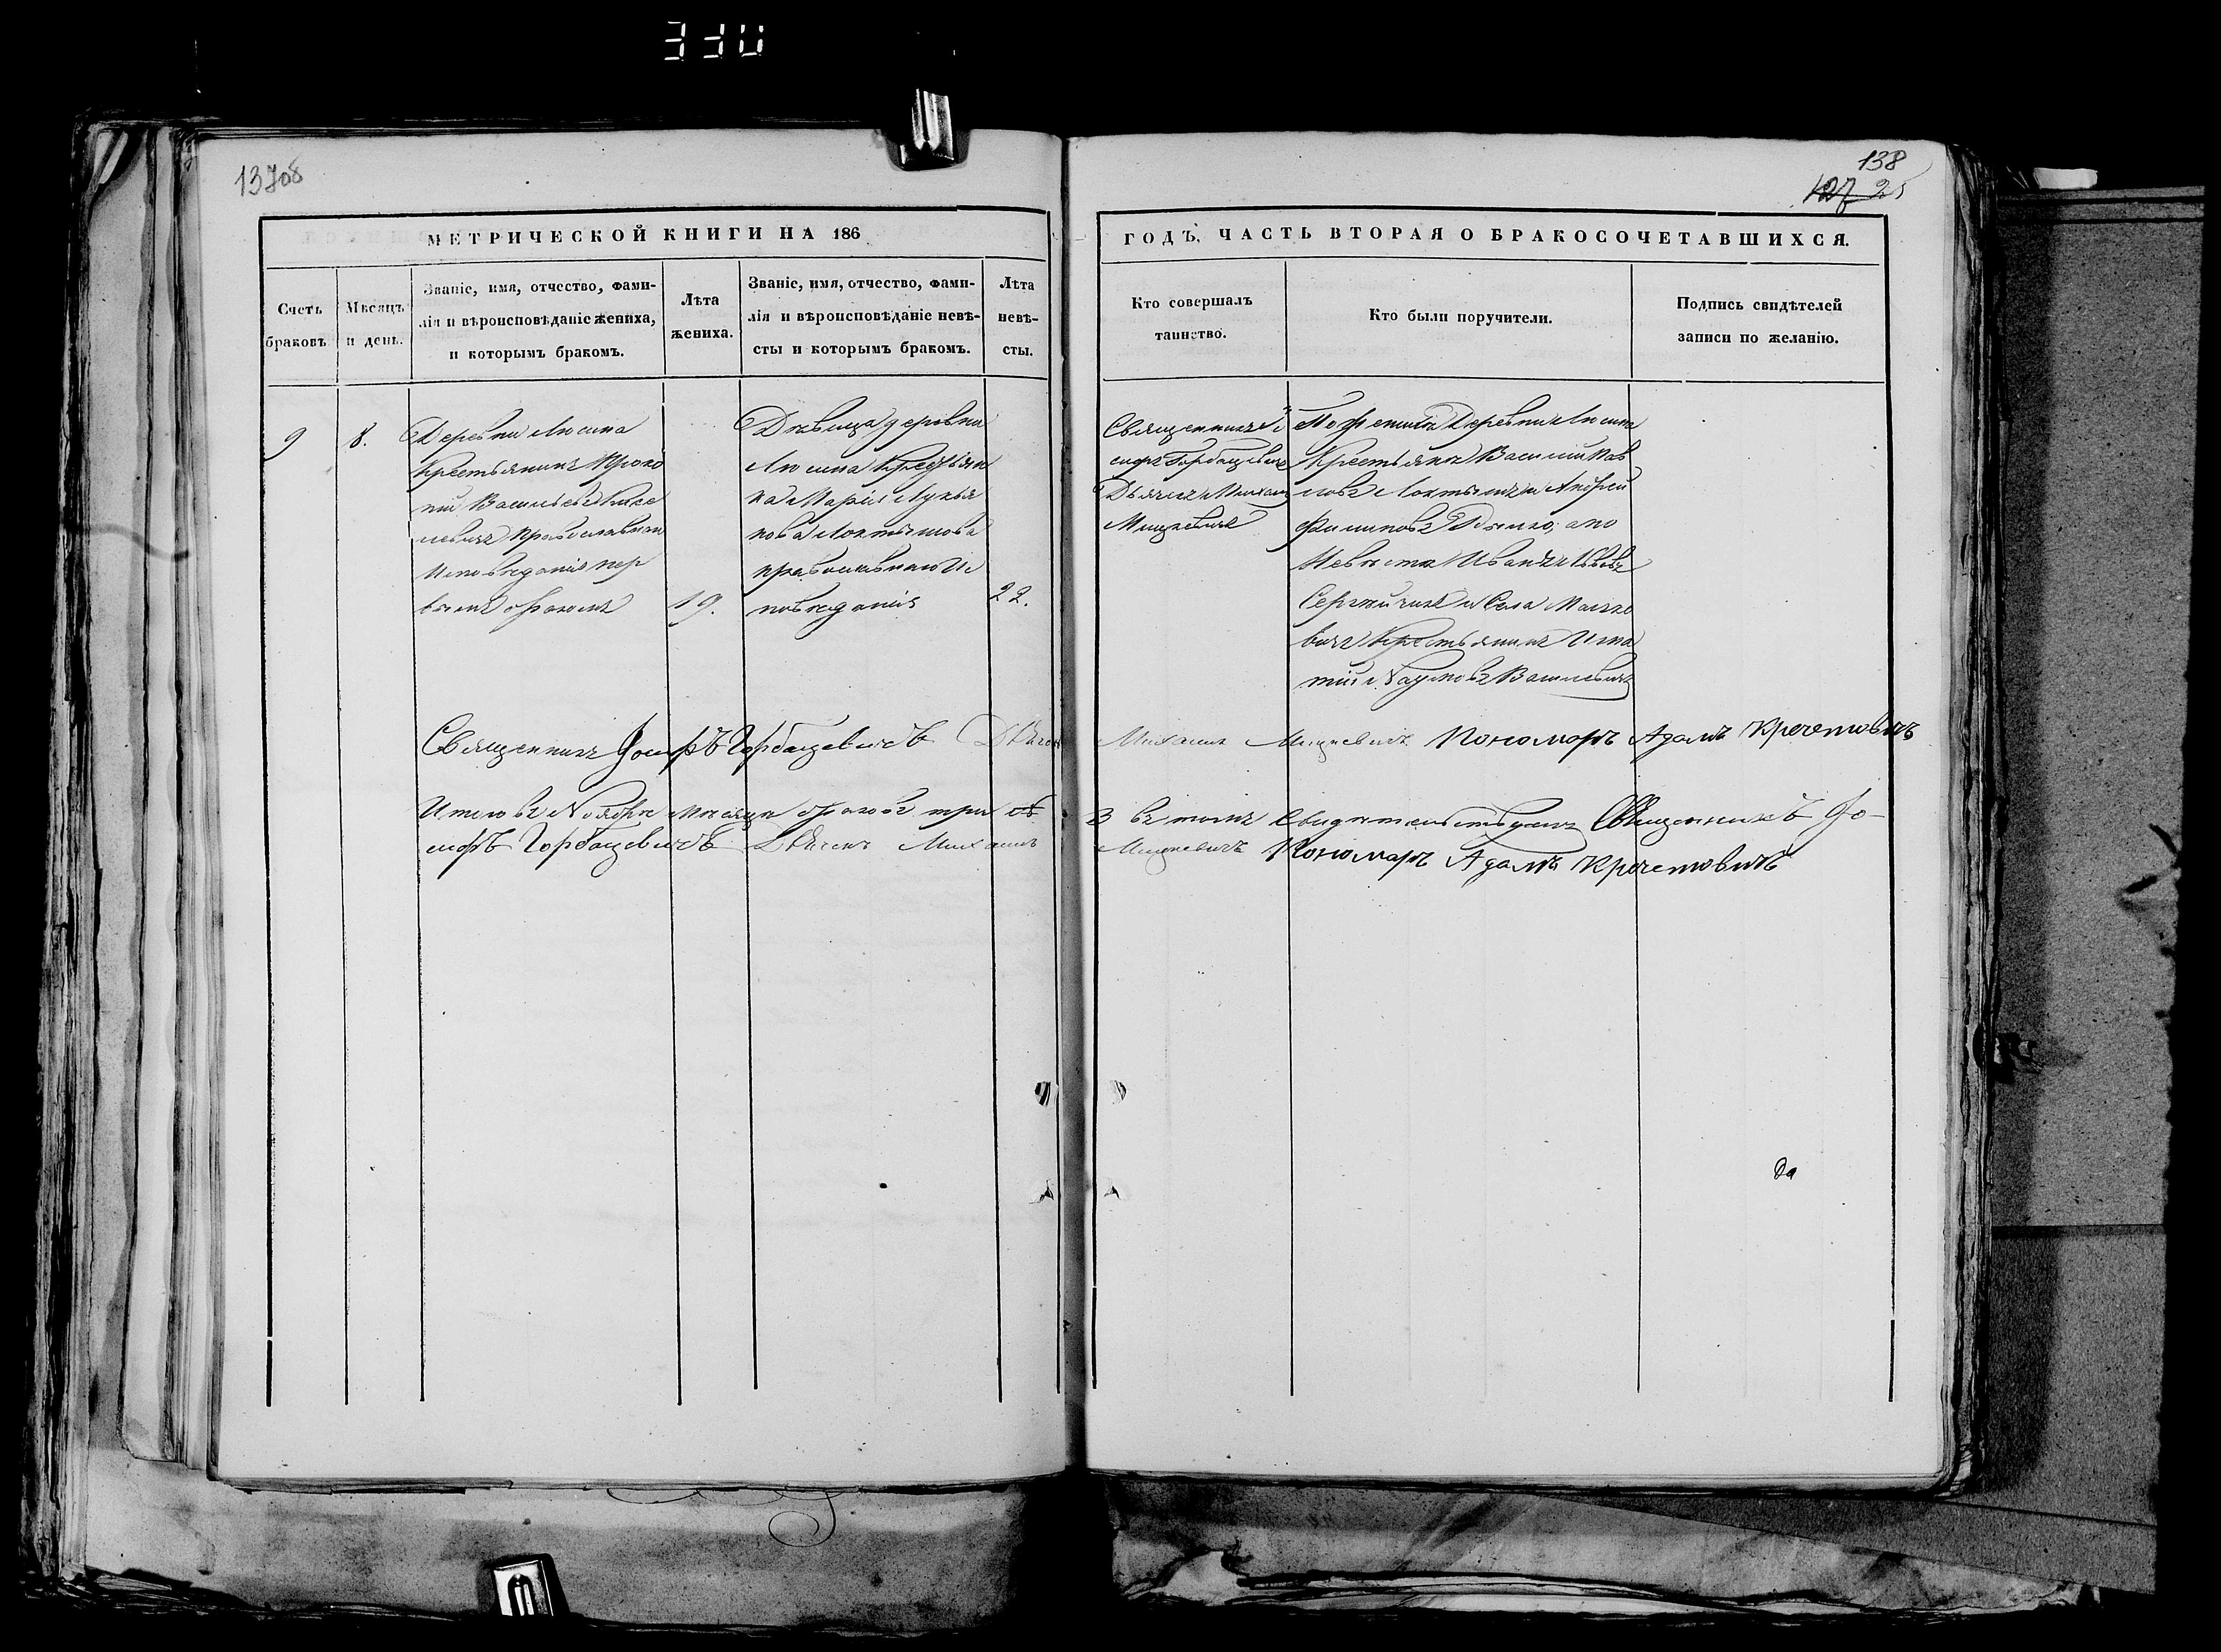 330
13708
138
127 25
МЕТРИЧЕСКОЙ КНИГИ НА 186
ГОДЪ, ЧАСТЬ ВТОРАЯ О БРАКОСОЧЕТАВШИХСЯ.
Счетъ
браковъ
Мѣсяцъ
и день.
Званіе, имя, отчество, фами-
лія и вѣроисповѣданіе жениха,
и которымъ бракомъ.
Лѣта
жениха.
Званіе, имя, отчество, фами-
лія и вѣроисповѣданіе невѣ-
сты и которымъ бракомъ.
Лѣта
невѣ-
сты.
Кто совершалъ
таинство.
Кто были поручители.
Подпись свидѣтелей
записи по желанію.
9
8.
Деревни Люсина
Крестьянинъ Проко
пій Васильевъ
православнаго
Исповѣданія пер
вымъ бракомъ
19.
Дѣвица деревни
Люсина Крестьян
ка Марія Лукья
нова Локтышова
православнаго Ис
повѣданія
22.
Священникъ І
осифъ Горбацевичъ
Дьячекъ Михаилъ
Мицкевичъ
По Женихѣ Деревни Люсина
Крестьяне Василій Пав
ловъ Локтышъ и Андрей
Филиповъ а по
Невѣстѣ Иванъ Львовъ
Сергейчикъ и Села Малько
вичъ Крестьянинъ Игна
тій Наумовъ Василевичъ
Священникъ Іосифъ Горбацевичъ Дьячекъ Михаилъ Мицкевичъ Пономарь Адамъ Кречетовичъ
Итого въ Ноябрѣ мѣсяцѣ браковъ три 3 въ томъ свидѣтельствуемъ Священникъ Іо-
сифъ Горбацевичъ Дьячекъ Михаилъ Мицкевичъ Пономарь Адамъ Кречетовичъ
да